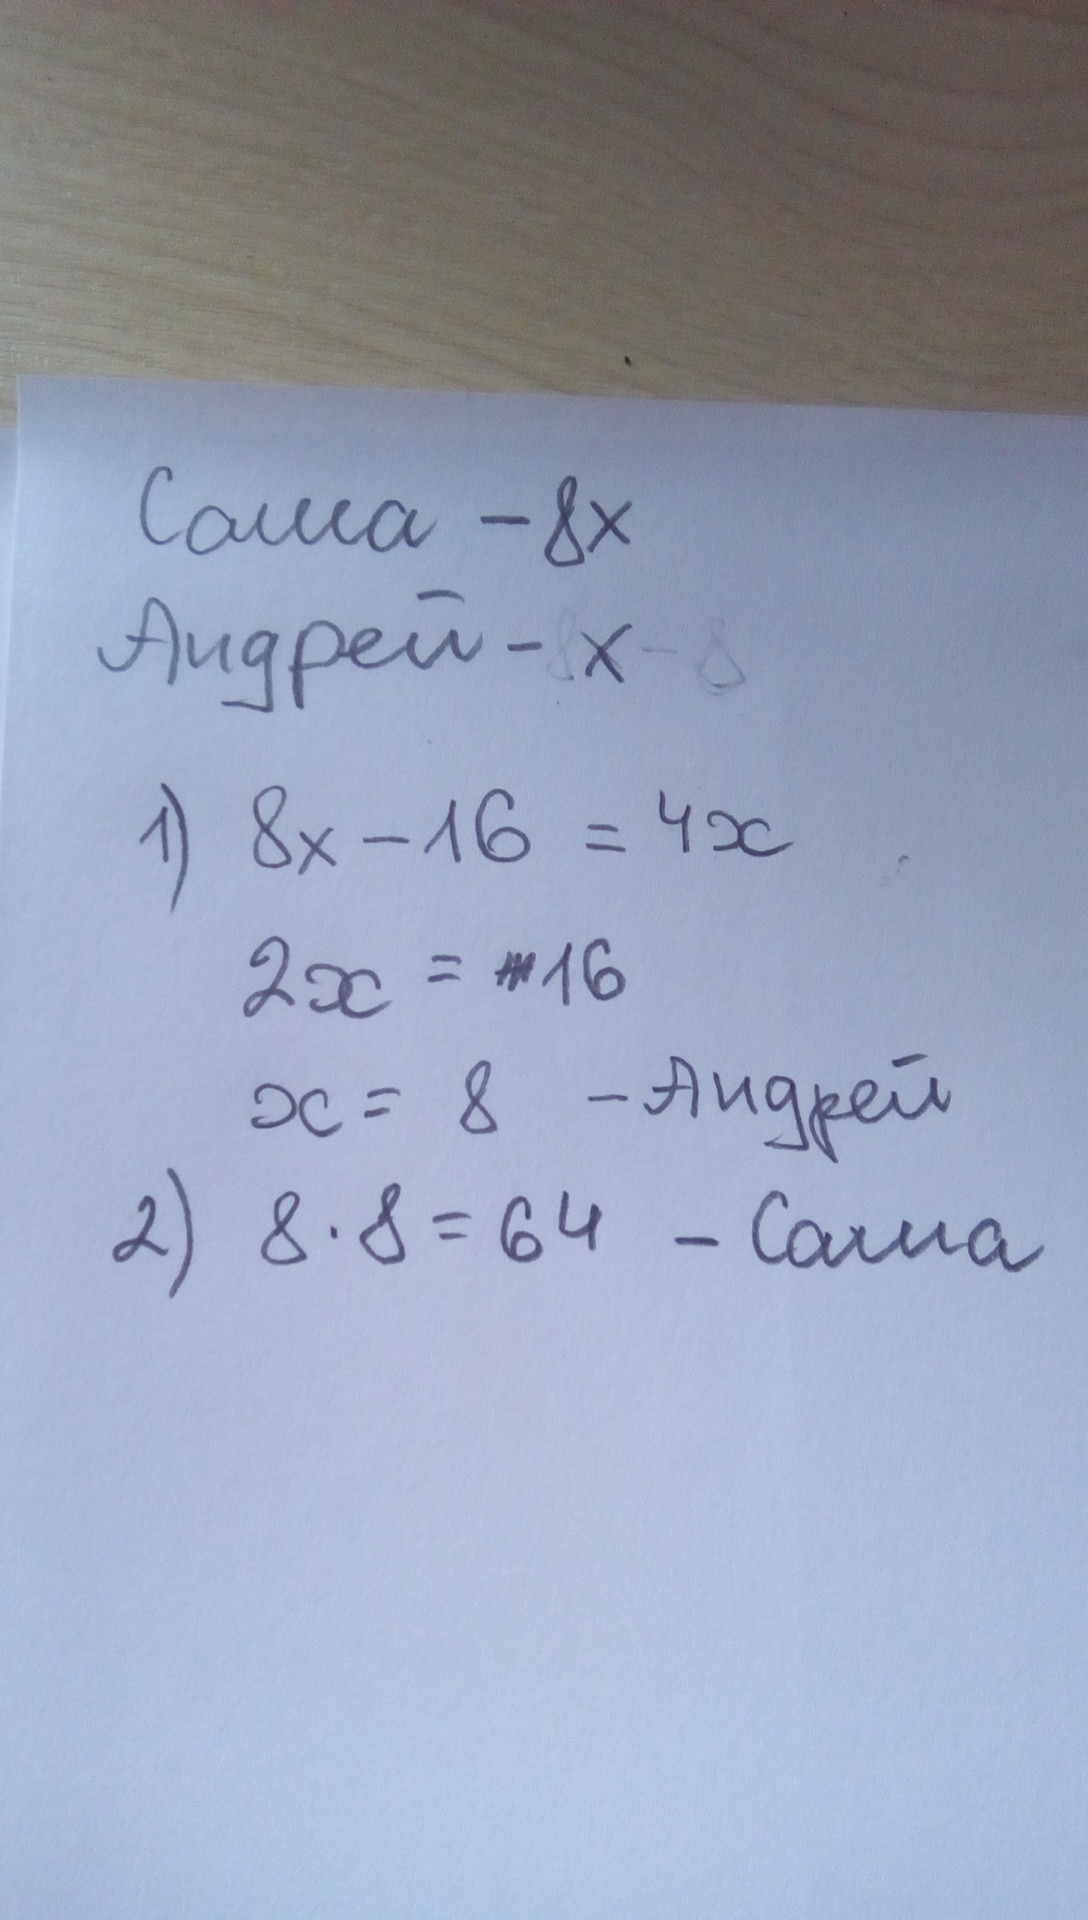 Саша - 8х
Андрей - х
1) 8х - 16 = 4х
2х = 16
х = 8 - Андрей
2) 8 · 8 = 64 - Саша